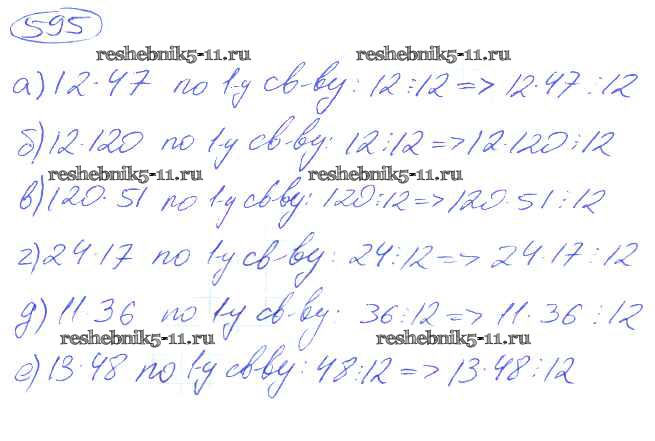 595
reshebnik5-11.ru reshebnik5-11.ru
а) 12·47 по 1-у св-ву: 12⋮12 => 12·47⋮12
б) 12·120 по 1-у св-ву: 12⋮12 => 12·120⋮12
reshebnik5-11.ru reshebnik5-11.ru
в) 120·51 по 1-у св-ву: 120⋮12 => 120·51⋮12
г) 24·17 по 1-у св-ву: 24⋮12 => 24·17⋮12
д) 11·36 по 1-у св-ву: 36⋮12 => 11·36⋮12
reshebnik5-11.ru reshebnik5-11.ru
е) 13·48 по 1-у св-ву: 48⋮12 => 13·48⋮12